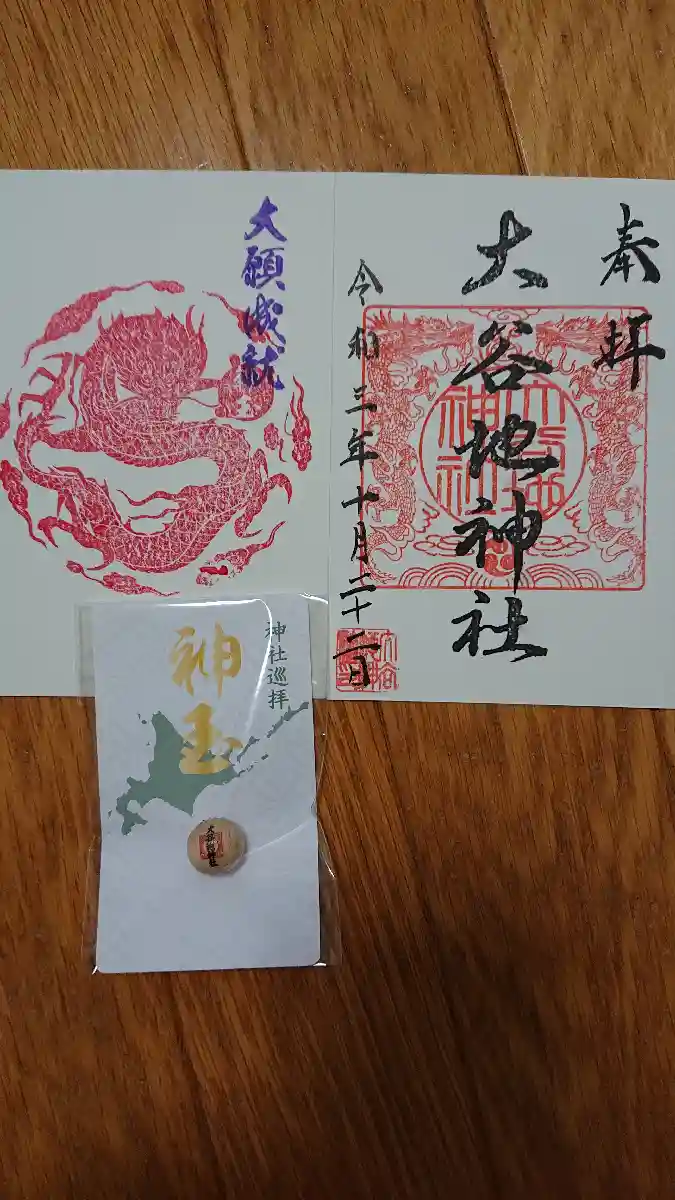 奉拝
大谷地神社
令和三年十月二十二日
大願成就
神社巡拝
神玉
大谷地神社